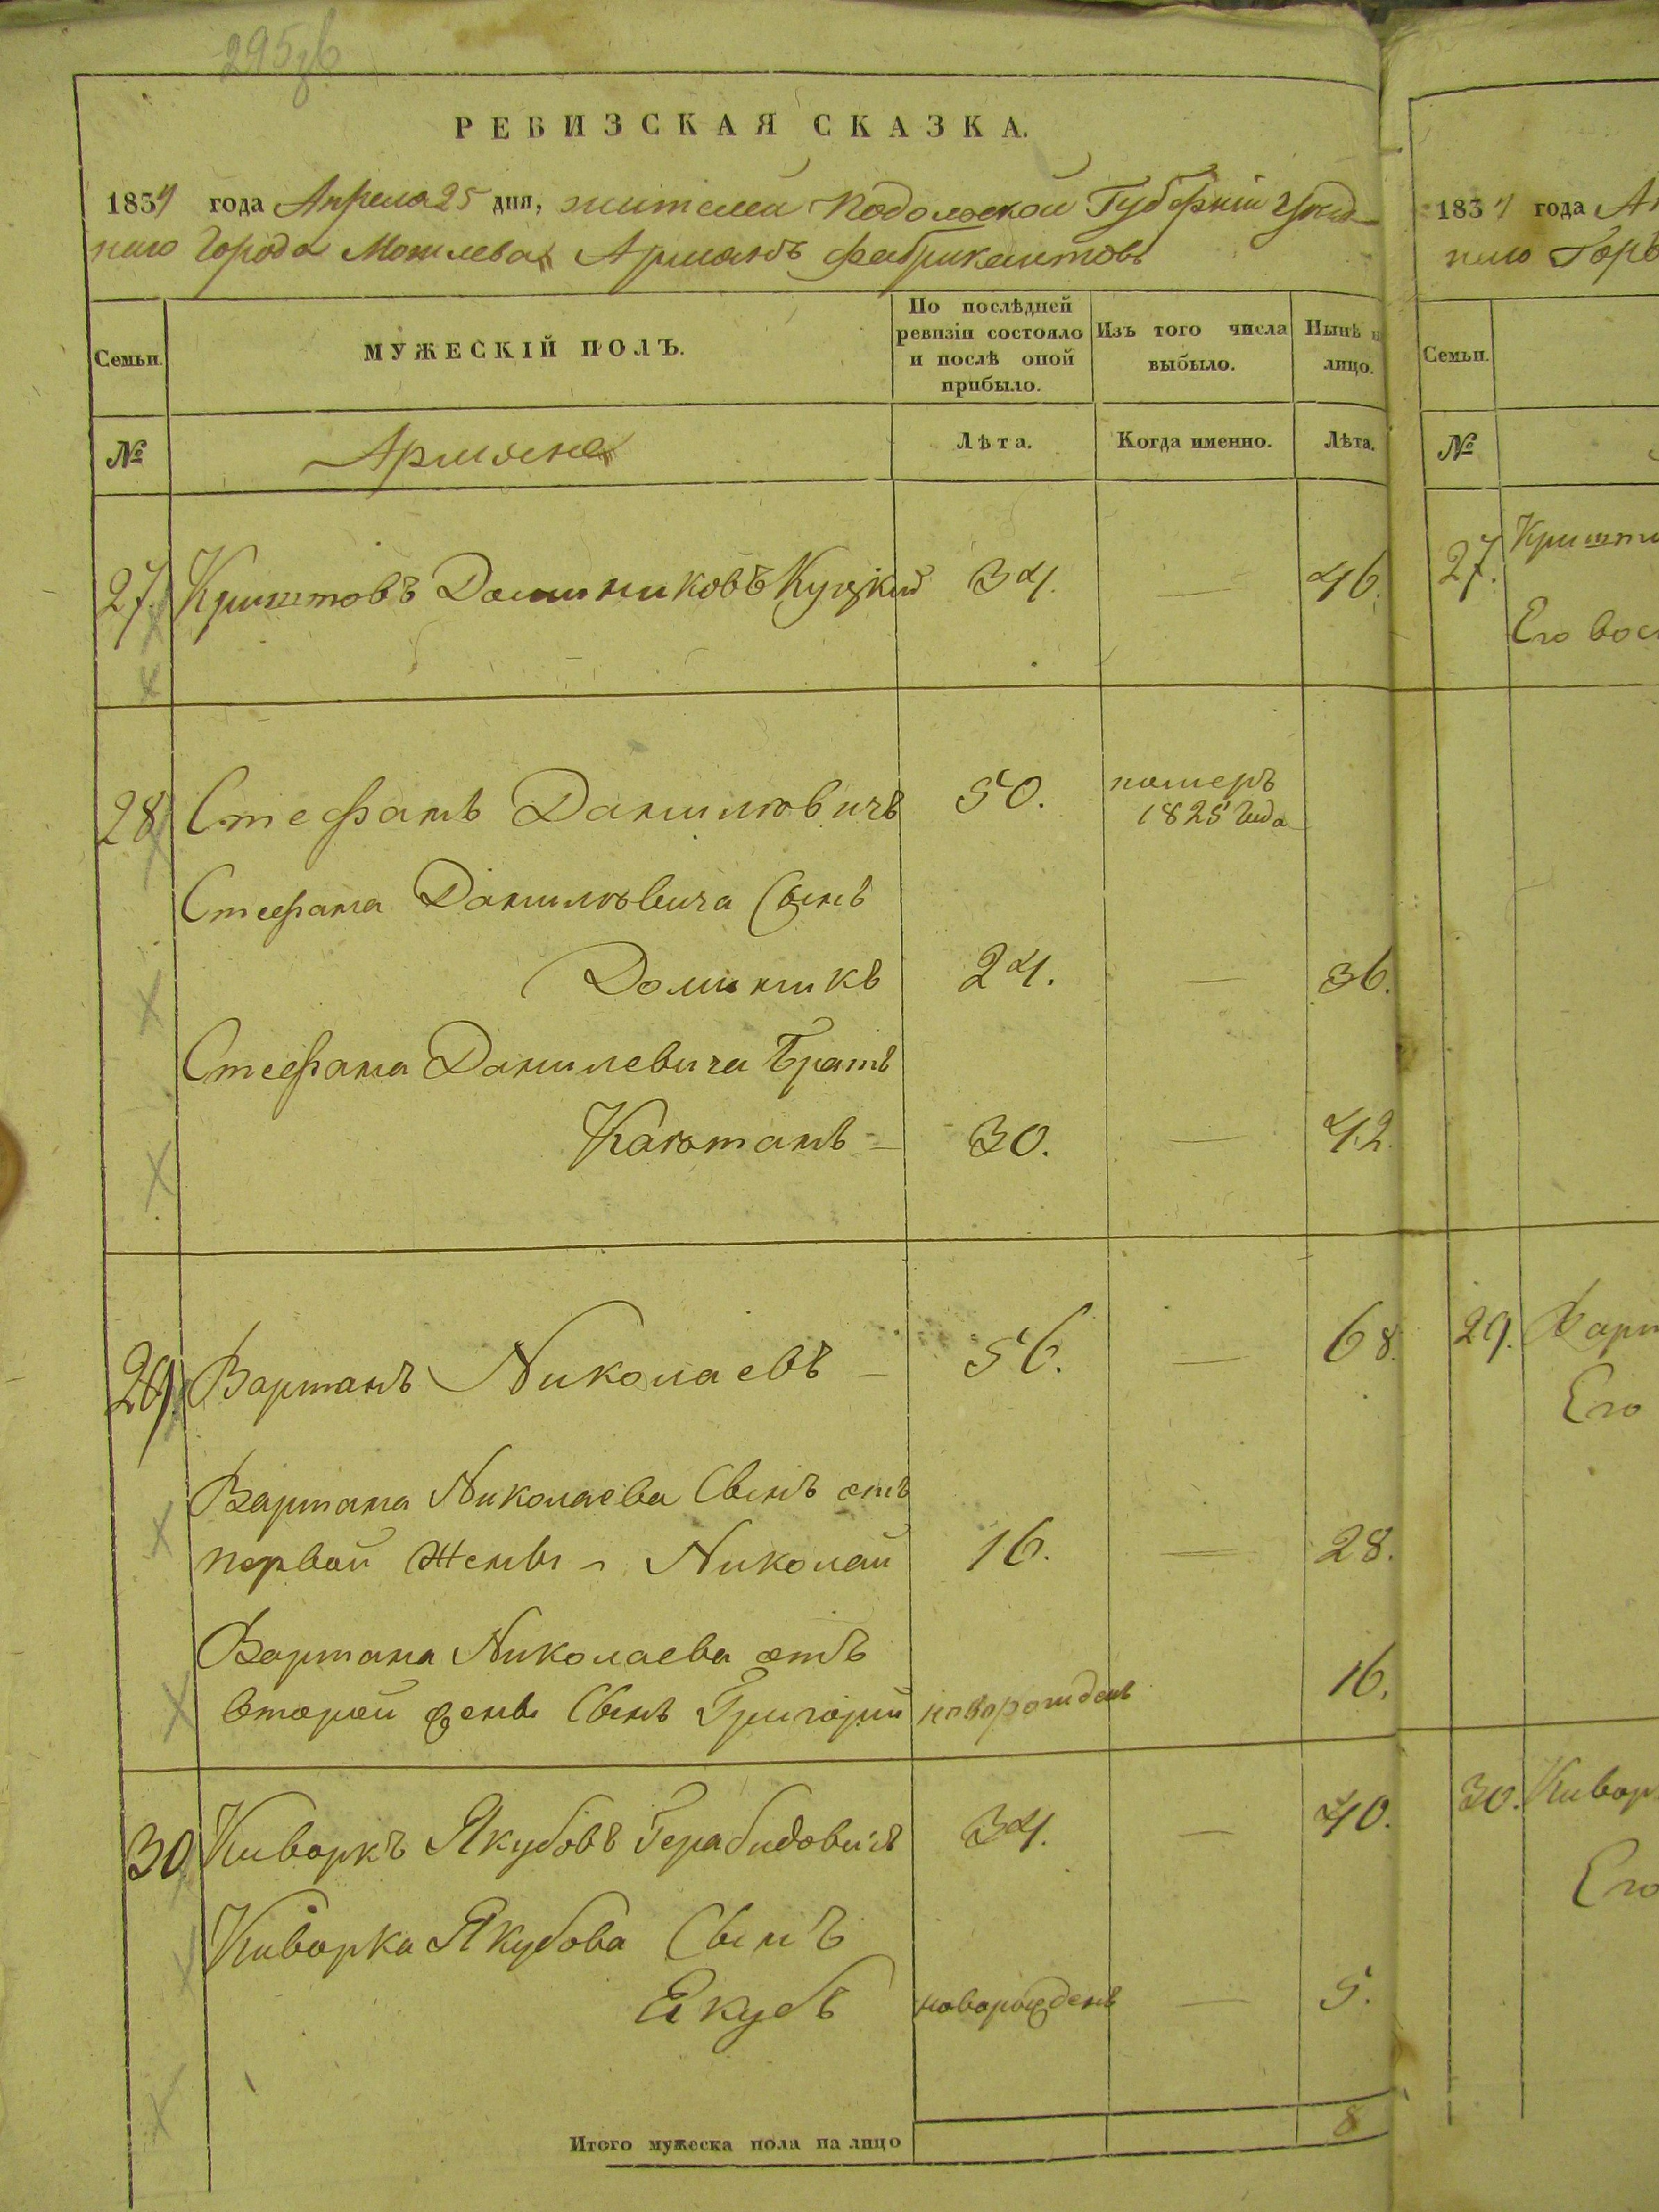 295
РЕВИЗСКАЯ СКАЗКА.
1834 года Апреля 25 дня, жителей Подольской Губернии Уезд
наго Города Могилева Армянъ фабрикантовъ
Семьи.
МУЖЕСКІЙ ПОЛЪ.
По послѣдней ревизіи состояло и послѣ оной прибыло.
Изъ того числа выбыло.
Нынѣ на лицо.
№
Армяне
Лѣта.
Когда именно.
Лѣта.
27. Криштовъ Доминиковъ Куцкий 34. — 46.
28 Стефанъ Даниловичъ 50. померъ 1825 Года
Стефана Даниловича Сынъ
Доминикъ 24. — 36.
Стефана Данилевича Братъ
Каютанъ — 30. — 42.
29. Вартанъ Николаевъ — 56. — 68.
Вартана Николаева Сынъ отъ
первой Жены - Николай 16. — 28.
Вартана Николаева отъ
второй жены Сынъ Григорий новорожденъ 16.
30 Киворкъ Якубовъ Серабидовичъ 34. — 40.
Киворка Якубова Сынъ
Якубъ новорожденъ — 5.
Итого мужеска пола на лицо 8
1834 года Ап
наго Горо
Семьи.
№
27. Кришто
Его
29. Варт
Его
30. Кивор
Его